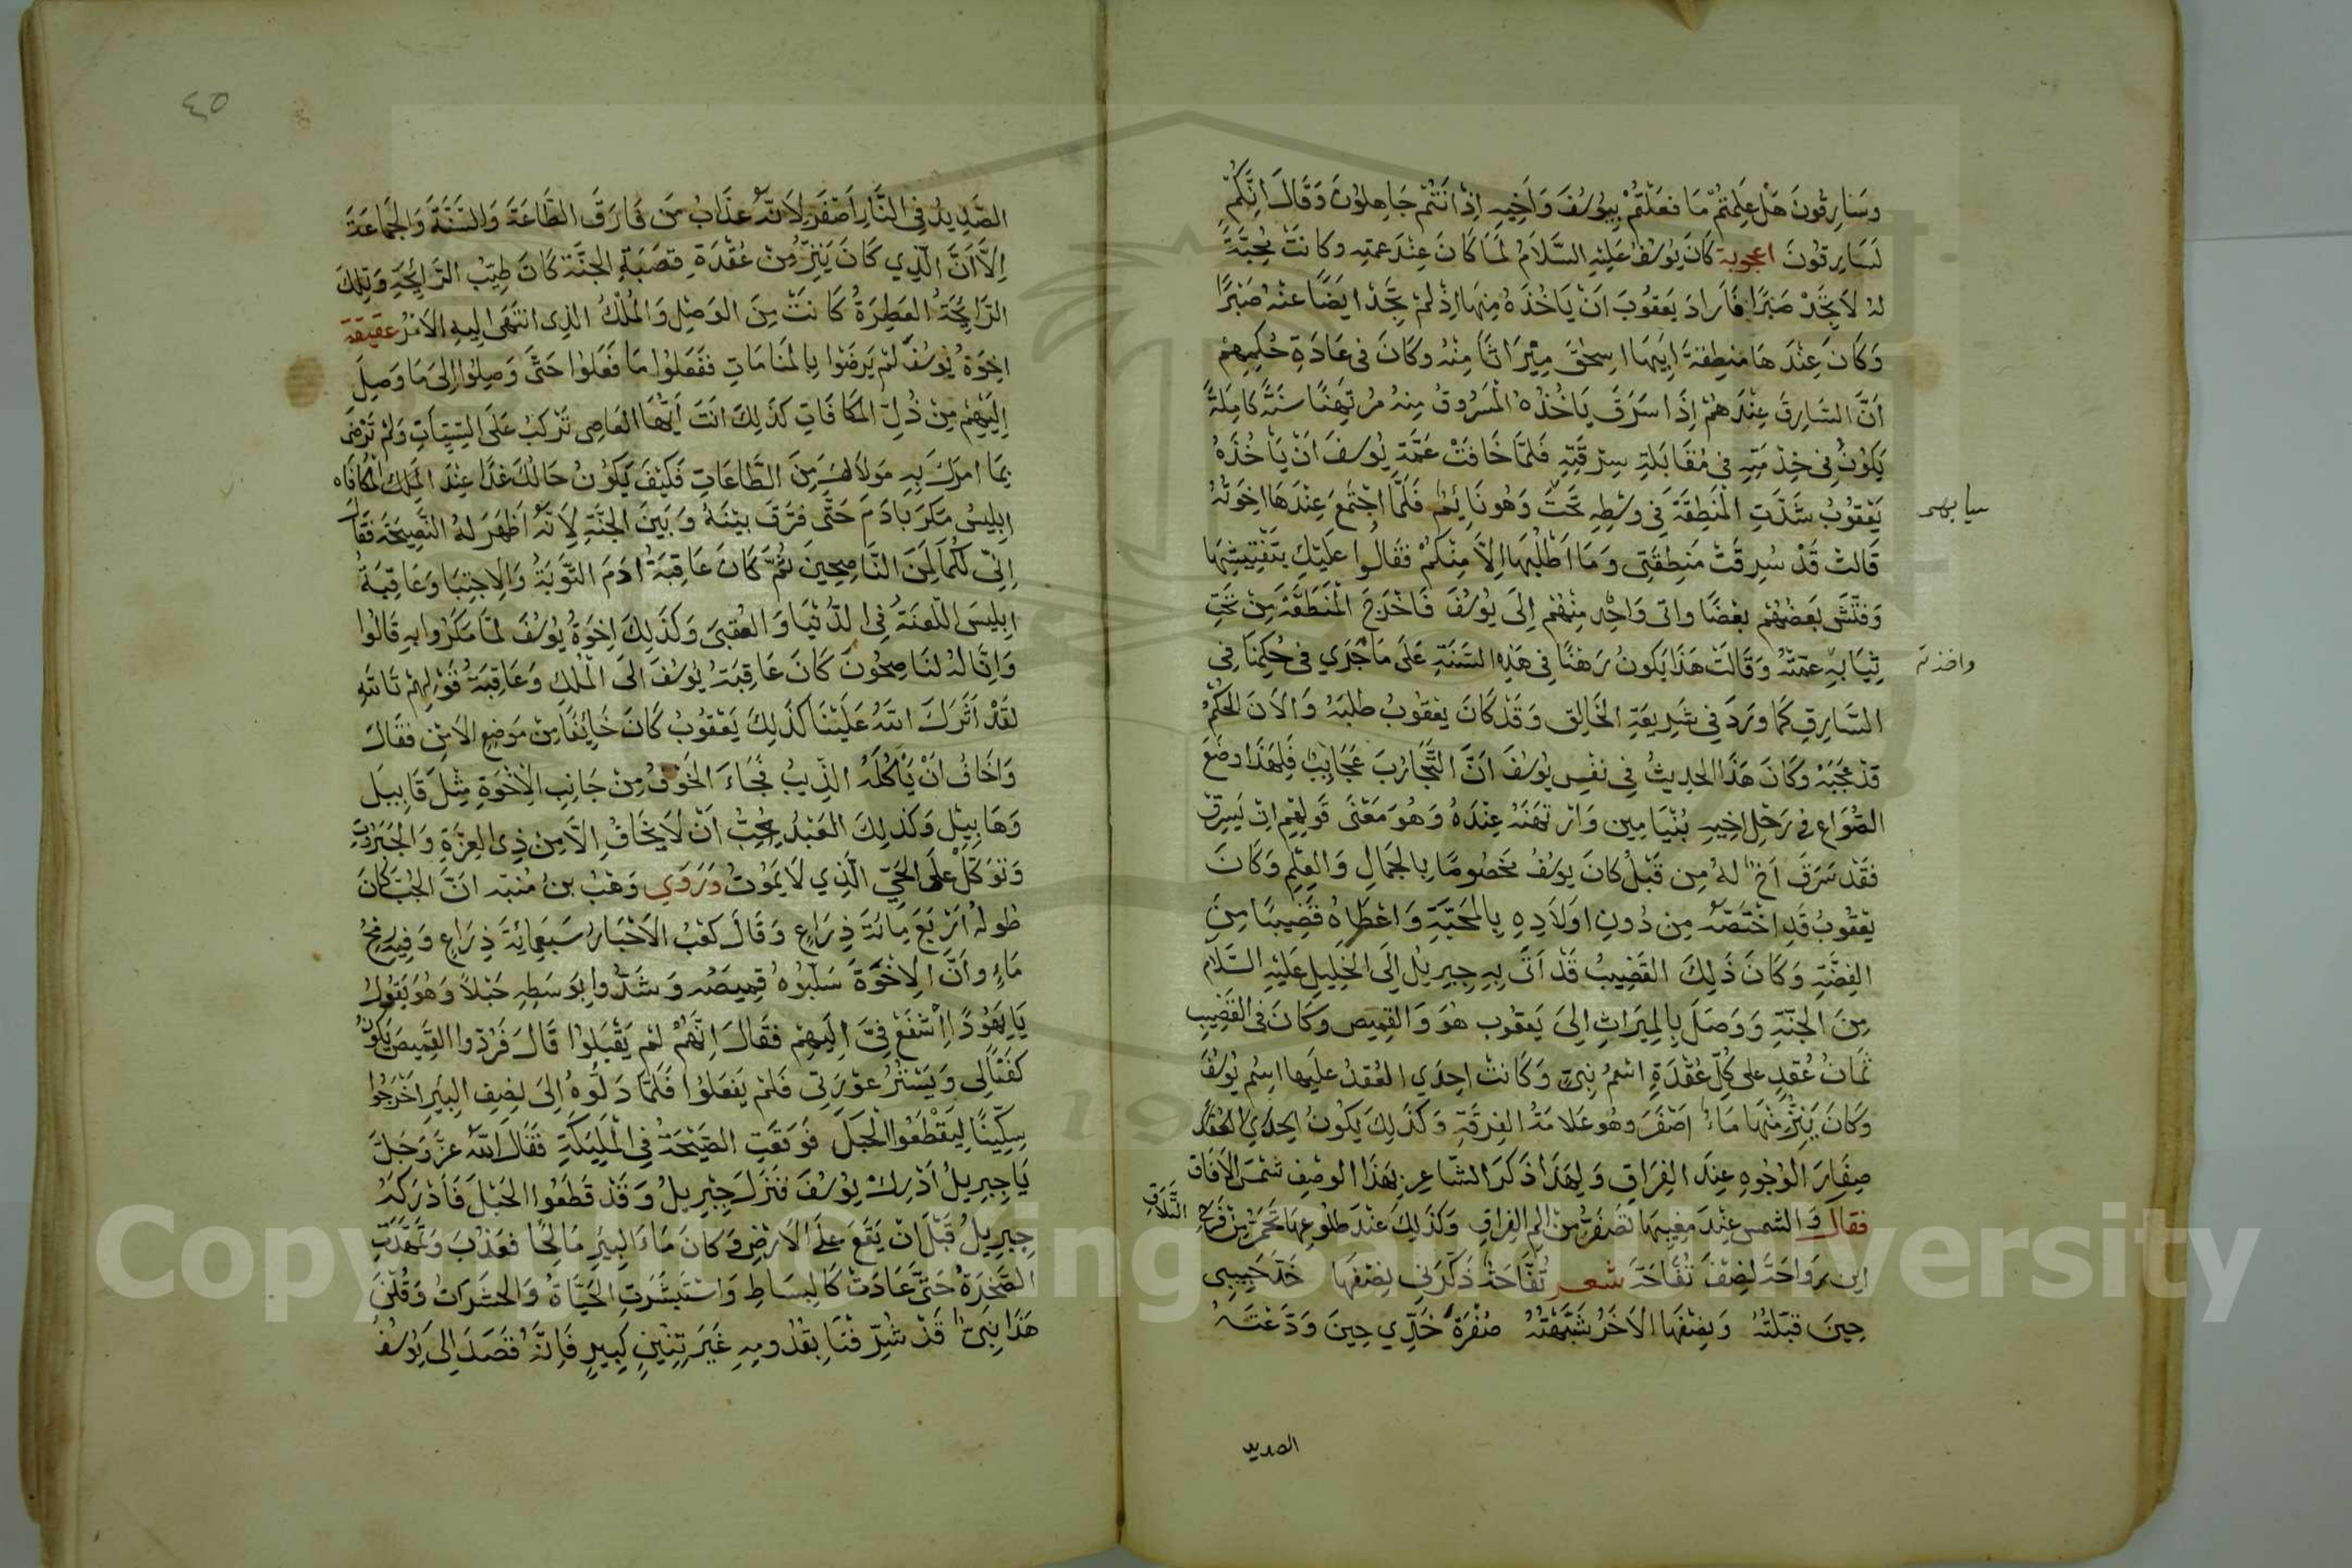 وَسَارِقُونَ هَلْ عَلِمْتُمْ مَا فَعَلْتُمْ بِيُوسُفَ وَأَخِيهِ إِذْ أَنْتُمْ جَاهِلُونَ وَقَالَ إِنَّكُمْ
لَسَارِقُونَ اعجوبة كَانَ يُوسُفُ عَلَيْهِ السَّلَامُ لَمَّا كَانَ عِنْدَ عمته وكانت مُحِبَّةً
لهُ لَا تَجِدْ صَبْرًا فَأَرَادَ يَعْقُوبَ أَنْ يَأْخُذَهُ مِنْهَا إِذْ لَمْ يَجِدْ أَيْضًا عَنْهُ صَبْرًا
وَكَانَ عِنْدَهَا مَنْطِقَةُ أَبِيهَا اسحق مِيرَاثًا مِنْهُ وَكَانَ فِي عَادَةِ حُكْمِهِمْ
أَنَّ السَّارِقَ عِنْدَهُمْ إِذَا سَرَقَ يَأْخُذُهُ الْمَسْرُوقُ مِنهُ مُرْتَهَنًا سَنَةً كَامِلَةً
يَكُونُ فِي خِدْمَتِهِ فِي مُقَابَلَةِ سِرْقَتِهِ فَلَمَّا خَافَتْ عَمَّةِ يُوسُفَ أَنْ يَأْخُذَهُ
يَعْقُوبُ شَدَّتِ الْمَنْطِقَةَ فِي وسْطِهِ تَحْتَ وَهُوَ نَائِمٌ فَلَمَّا اجْتَمَعَ عِنْدَهَا اخوَتُهُ
ثيابهـ
قَالَتْ قَدْ سُرِقَتْ مَنطِقَتِي وَمَا أَطْلُبُهَا إِلَّا مِنْكُمْ فَقَالُوا عَلَيْكِ بِتَفْتِيشِهَا
وَفَتَّشَ بَعْضُهُمْ بَعْضًا واتى وَاحِد مِنْهُمْ إِلَى يُوسُفَ فَأَخْرَجَ الْمَنْطَقَةَ مِنْ تَحْتِ
ثِيَابِهِ عمَّتُهُ وَقَالَتْ هَذَا يَكُونُ رَهْنًا فِي هَذِهِ السَّنَةِ عَلَى مَا جَرَى فِي حُكْمِنَا فِي
واخذته
السَّارِقِ كَمَا وَرَدَ فِي شَرِيعَةِ الْخَالِقِ وَقَدْ كَانَ يَعْقُوبُ طَلَبَهُ وَالآنَ الْحُكْمُ
قَدْ حَجَبَهُ وَكَانَ هَذَا الْحَدِيثُ فِي نفْسِ يُوسُفَ أَنَّ التَّجَارُبَ عَجَايِبُ فَلِهَذَا وَضَعَ
الصُّوَاعَ فِي رَحْلِ اخِيهِ بُنْيَامِين وَارْتَهَنَهُ عِنْدَهُ وَهُوَ مَعْنَى قَوْلِهِمْ ان يَسْرِقْ
فَقَدْ سَرَقَ أَخٌ لَهُ مِن قَبْلُ كَانَ يوسُفُ مَخْصُوصًا بِالْجَمَالِ وَالْعِلْمِ وَكَانَ
يَعْقُوبُ قَدِ اخْتَصَّهُ مِنْ دُونِ اولَادِهِ بِالْمَحَبَّةِ وَاعْطَاهُ قَضِيبًا مِنَ
الْفِضَّةِ وَكَانَ ذَلِكَ الْقَضِيبُ قَدْ أَتَى بِهِ جِبْرِيلُ إِلَى الْخَلِيلِ عَلَيْهِ السَّلَام
مِنَ الْجَنَّةِ وَوَصَلَ بِالْمِيرَاثِ إِلَى يَعقُوب هُوَ وَالْقَمِيص وَكَانَ فِي الْقَضِيبِ
ثَمَانُ عُقَدٍ عَلَى كُلِّ عُقْدَةٍ اسْمُ نَبِيٍّ وَكَانَتْ إِحْدَي الْعُقَدِ عَلَيهَا اسم يُوسُفَ
وَكَانَ يَنِزُّ مِنْهَا مَاءٌ أَصْفَرَ وَهُوَ عَلَامَةُ الْفِرْقَةِ وَكَذَلِكَ يَكُونُ إِحْدَي الْعُقَدِ
صِفَارَ الْوُجُوهِ عِنْدَ الْفِرَاقِ وَلِهَذَا ذَكَرَ الشَّاعِر بِهَذَا الوصْفِ شَمْسَ الْآفَاقِ
فقال وَالشَّمس عِنْدَ مَغِيبِهَا تَصْفَرُّ مِنْ ألم الفِرَاقِ وَكَذَلِكَ عَنْدَ طلُوعِهَا تَحْمَرُّ مِنْ فَرَحِ التَّلَاقِ
ابن رَوَاحَةَ لِضِفَ تُفَّاحَةَ شعر تُفَّاحَةٌ ذَكَّرَنِي نِصْفُهَا خَدَّ حَبِيبِي
حِينَ قَبَّلْتُهُ وَنِصْفُهَا الآخَرُ شَبَّهْتُهُ صُفْرَةَ خَدِّي حِينَ وَدَّعْتُهُ
الصديد
٤٥
الصَّدِيدُ فِي النَّارِ أَصْفَرَ لِأَنَّهُ عَذَابُ مَن فَارَقَ الطَّاعَةَ وَالسُّنَّةَ وَالْجَمَاعَةَ
إِلَّا أَنَّ الَّذِي كَانَ يَنِزُّ مِنْ عُقْدَةِ قَصَبَةِ الْجَنَّةِ كَانَ طِيِّبَ الرَّايِحَةِ وَتِلكَ
الرَّايِحَةُ الْعَطِرَةُ كَانَتْ مِنَ الوَصْلِ وَالْمُلْكُ الَّذِي انْتَهَى إِلَيهِ الأَمْرُ عقيقة
اخْوَةُ يُوسُفَ لَمْ يَرْضَوْا بِالْمَنَامَاتِ فَفَعَلُوا مَا فَعَلُوا حَتَّى وَصِلُوا إِلَى مَا وَصِلَ
إِلَيْهِمْ مِنْ ذُلِّ الْمَكَافَاتِ كَذَلِكَ أَنْتَ أَيُّهَا الْعَاصِي تَرْكَبُ عَلَى السَّيِّئَاتِ وَلَمْ تَرْضَ
بِمَا أمرَكَ بِهِ مَوْلَاكَ مِنَ الطَّاعَاتِ فَكَيْفَ يَكُونُ حَالُكَ غَدًا عِنْدَ الْمَلِكِ الْمُكَافَاه
إِبْلِيسُ مَكَرَ بِآدَمَ حَتَّى فَرَّقَ بَيْنَهُ وَبَيْنَ الْجَنَّةِ لِأَنَّهُ أَظْهَرَ لَهُ النَّصِيحَةَ فَقَالَ
إِنِّي لَكُمَا لَمِنَ النَّاصِحِينَ ثُمَّ كَانَ عَاقِبَةُ آدَمَ التَّوْبَةُ وَالِاجْتِبَا وَعَاقِبَةُ
إِبْلِيسَ اللَّعْنَةُ فِي الدُّنْيَا وَالْعُقْبَى وَكَذَلِكَ إِخْوَةُ يُوسُفَ لَمَّا مَكَرُوا بِهِ قَالُوا
وَإِنَّا لَهُ لَنَاصِحُونَ كَانَ عَاقِبَةُ يُوسُفَ الَى الْمُلْكِ وَعَاقِبَةُ قَوْلِهِمْ تَاللَّهِ
لَقَدْ آثَرَكَ اللَّهُ عَلَيْنَا كَذَلِكَ يَعْقُوبُ كَانَ خَائِفًا مِنْ مَوْضِعِ الأَمْنِ فَقَالَ
وَأَخَافُ أَنْ يَأْكُلَهُ الذِّيبُ فَجَاءَ الْخَوْفُ مِنْ جَانِبِ الْإِخْوَةِ مِثْلَ قَابِيلَ
وَهَابِيلِ وَكَذَلِكَ الْعَبْدُ يَجِبُ أَنْ لَا يَخَافُ إِلَّا مِنْ ذِي الْعِزَّةِ وَالْجَبَرُوتِ
وَتَوَكَّلْ عَلَى الْحَيِّ الَّذِي لَا يَمُوتُ وَرَوَي وَهْبُ بنُ مُنَبِّه أَنَّ الْجُبَّ كَانَ
طُولُهُ أَرْبَعَ مِائَةَ ذِرَاعٍ وَقَالَ كَعْبُ الأَحْبَارِ سَبْعمِائَةَ ذِرَاعٍ وَفِيهِ
مَاءٍ وأَنَّ الإِخْوَةَ سَلَبُوهُ قمِيصَهُ وَشَدُّوا بِوَسَطِهِ حَبْلًا وَهُوَ يَقُولُ
يَا يَهُودَا أشْفَعْ فِيَّ إِلَيْهِمْ فَقَالَ إِنَّهُمْ لَمْ يَقْبَلُوا قَالَ فَرُدُّوا الْقَمِيصَ يَكُونُ
كَفَنًا لِي وَيَسْتُرُ عَوْرَتِي فَلَمْ يَفْعَلُوا فَلَمَّا دَلُّوهُ إِلَى نِصْفِ الْبِئْرِ أَخْرَجُوا
سِكِّينًا لِيَقْطَعُوا الْحَبَلَ فَوَقَعَتِ الصَّيْحَةُ فِي الْمَلَيِكَةِ فَقَالَ اللَّهُ عَزَّ وَجَلَّ
يَا جِبْرِيلُ أَدْرِكْ يُوسُفَ فَنَزَلَ جِبْرِيلُ وَقَدْ قَطَعُوا الْحَبْلَ فَأَدْرَكَهُ
جِبْرِيلُ قَبْلَ أَنْ يَقَعَ عَلَى الْأَرْضِ وَكَانَ مَاءَ الْبِيرِ مَالِحًا فَعَذُبَ وَتَمَهَّدَتِ
الصَّخْرَةُ حَتَّى عَادَتْ كَالْبِسَاطِ وَاسْتَبْشَرَتِ الْحَيَّاةُ وَالْحَشَرَاتُ وَقُلْنَ
هَذَا نَبِيٌّ قَدْ شُرِّفْنَا بِقُدُومِهِ غَيْرَ تِنِّينٍ كَبِيرٍ فَإِنَّهُ قَصَدَ إِلَى يُوسُفَ
Copyright © King Saud University